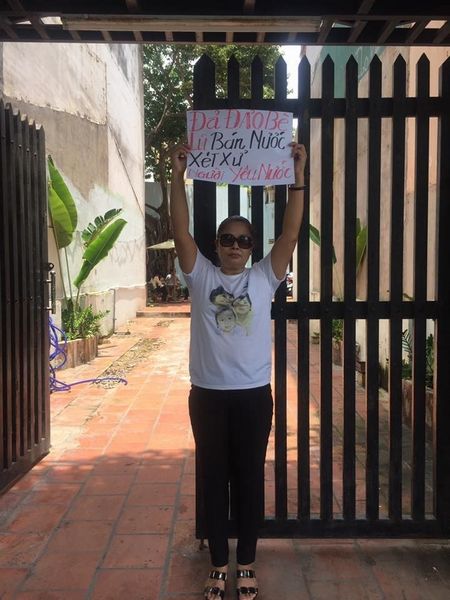 Đả ĐẢO Bè
Lũ Bán Nước
XÉT XỬ
Người Yêu Nước